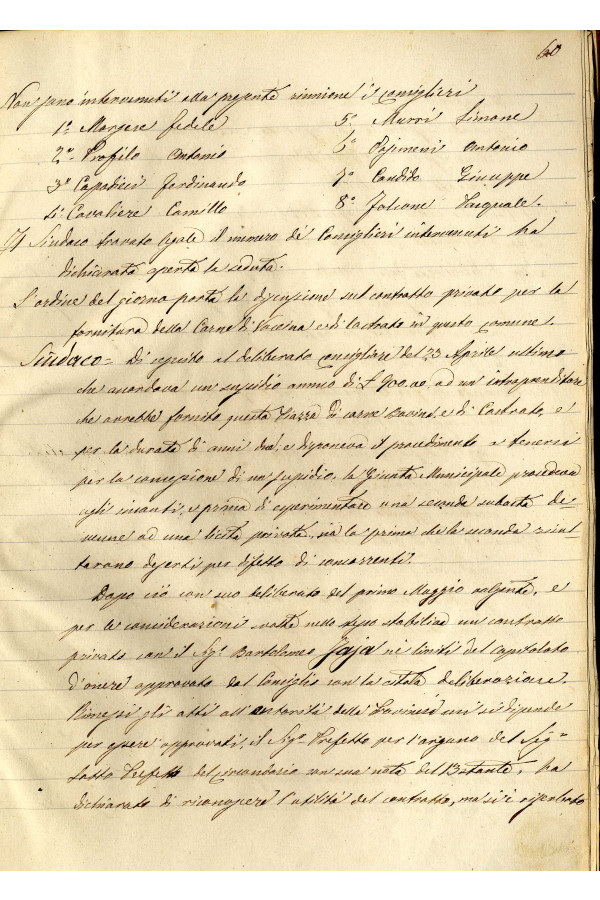 60
Non sono intervenuti alla presente riunione i consiglieri
1º Morsere Fedele 5º Murri Simone
2º Profilo Antonio 6º Antonio
3º Capodieci Ferdinando 7º Candido Giuseppe
4º Cavaliere Camillo 8º Falcone Pasquale.
Il Sindaco trovato legale il numero dé Consiglieri intervenuti ha
dichiarata aperta la seduta.
L'ordine del giorno porta la discussione sul contratto privato per la
fornitura della Carne di Vaccina e di Castrato in questo comune.
Sindaco = Di seguito al deliberato consigliare del 23 Aprile ultimo
che accordava un susidio annuo di £ 900.00 ad un intraprenditore
che avrebbe fornito questa Piazza di carne Bovina, e di Castrato, e
per la durata di anni due, e disponeva il procedimento a tenersi
per la concessione di un susidio. la Giunta Municipale procedeva
agli incanti, e prima di esperimentare una seconda subasta de-
venne ad una licita privata, sia la prima che la seconda risul-
tarono deserti per difetto di concorrenti.
Dopo ciò con suo deliberato del primo Maggio volgente, e
per le considerazioni svolte nello stesso stabiliva un contratto
privato con il Sigr Bartolomeo Jaja nei limiti del capitolato
d'onere approvato dal Consiglio con la citata deliberazione.
Rimessi gli atti all'autorità della Provincia cui si dipende
per essere approvati, il Sigr Prefetto per l'organo del Sigr
Sotto Prefetto del circondario con sua nota del 13 stante, ha
dichiarato di riconoscere l'utilità del contratto, ma si è riserbato